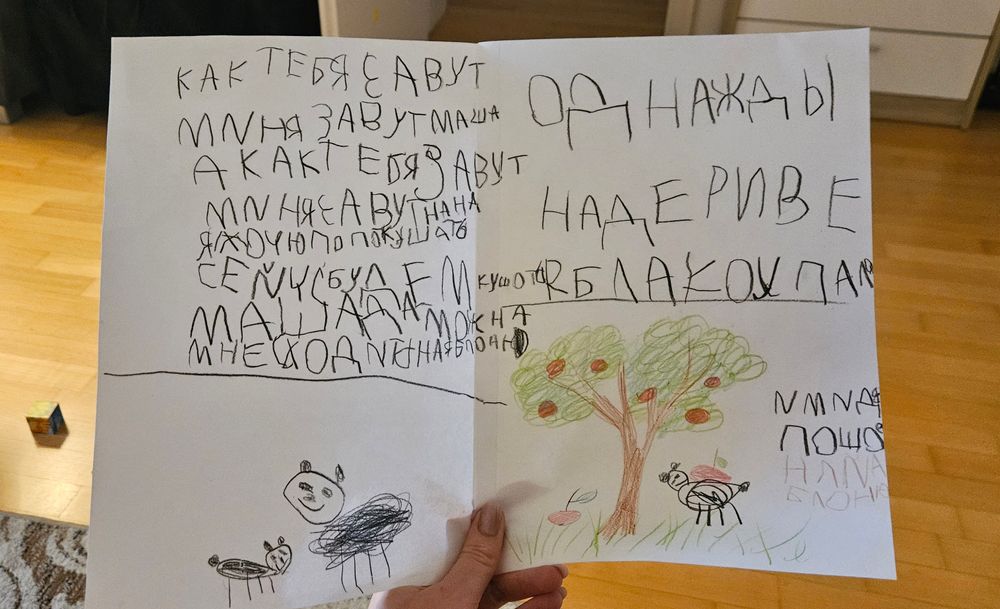 КАК ТЕБЯ САВУТ
МNНЯ ЗАВУТ МАША
А КАК ТЕБЯ ЗАВУТ
МNНЯ САВУТ НАНА
Я ХОЧЮ ПОПОКУШАТЬ
СЕЙЧС БУДЕМ КУШОТЬ
МАША ДА МОЖНА
МНЕ
ОДНАЖДЫ
НАДЕРИВЕ
ЯБЛАКО УПАЛ
ПОШО
НЯПА
БЛОНЯ